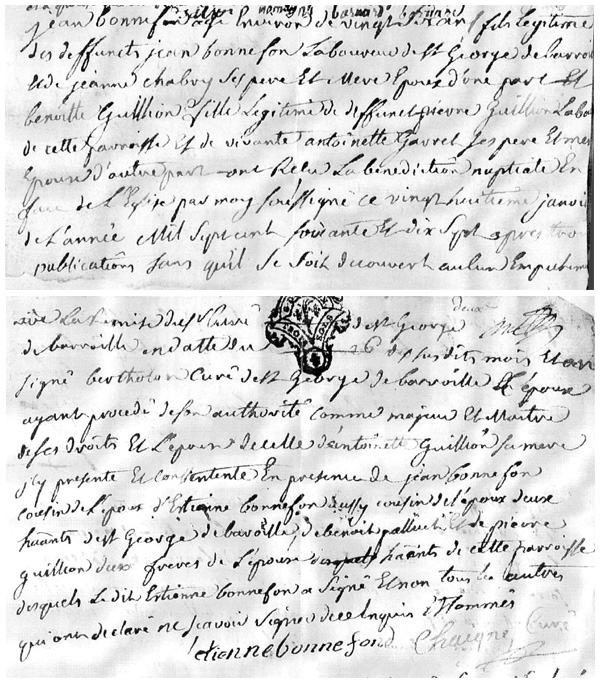 jean bonnefon agé d'environ de vingt six ans fils legitime
des deffuncts jean bonnefon Laboureur de St George de barroi
et de jeanne chabry ses pere Et Mere Epoux d'une part Et
benoitte Guillion fille Legitime de deffunct pierre Guillion Labo
de cette parroisse Et de vivante antoinette Gavret ses pere Et mer
Epouse d'autre part ont Recu La bénédiction nuptiale En
face de L'Eglise par moy soussigné ce vingt huitieme janvie
de L'année Mil Sept cent soixante Et dix Sept apres trois
publications sans qu'il se soit decouvert aucun Empechem
deux
veüe La remise du Sr Curé de St George
de barroille en datte du 26 des susdits mois Et an
signé bertholon Curé de St George de barroille L'époux
ayant procedé de son authorité comme majeur Et Maitre
de ses droits Et L'epouse de celle d'antoinette Guillion sa mere
j'y presente Et consentente En presence de jean bonnefon
cousin de L'epoux d'Estienne bonnefon aussy cousin de L'epoux deux
habitants de St George de baroille, de benoit palluet Et de pierre
guillion deux freres de L'épouse habitants de cette parroisse
desquels Le dit Estienne bonnefon a signé Et non tous les autres
qui ont declaré ne scavoir signer de ce Enquis Et sommés
Etienne bonnefond Chaigne Curé